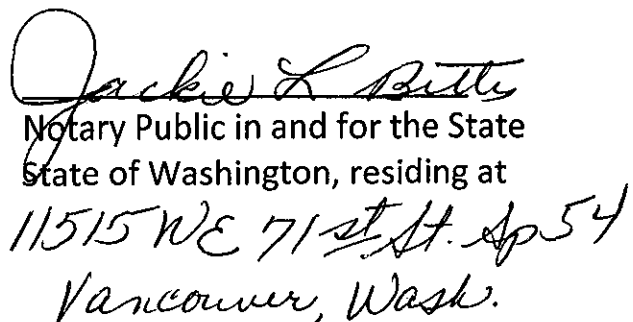 Jackie L Bitts
Notary Public in and for the State
State of Washington, residing at
11515 NE 71st. St. Sp 54
Vancouver, Wash.